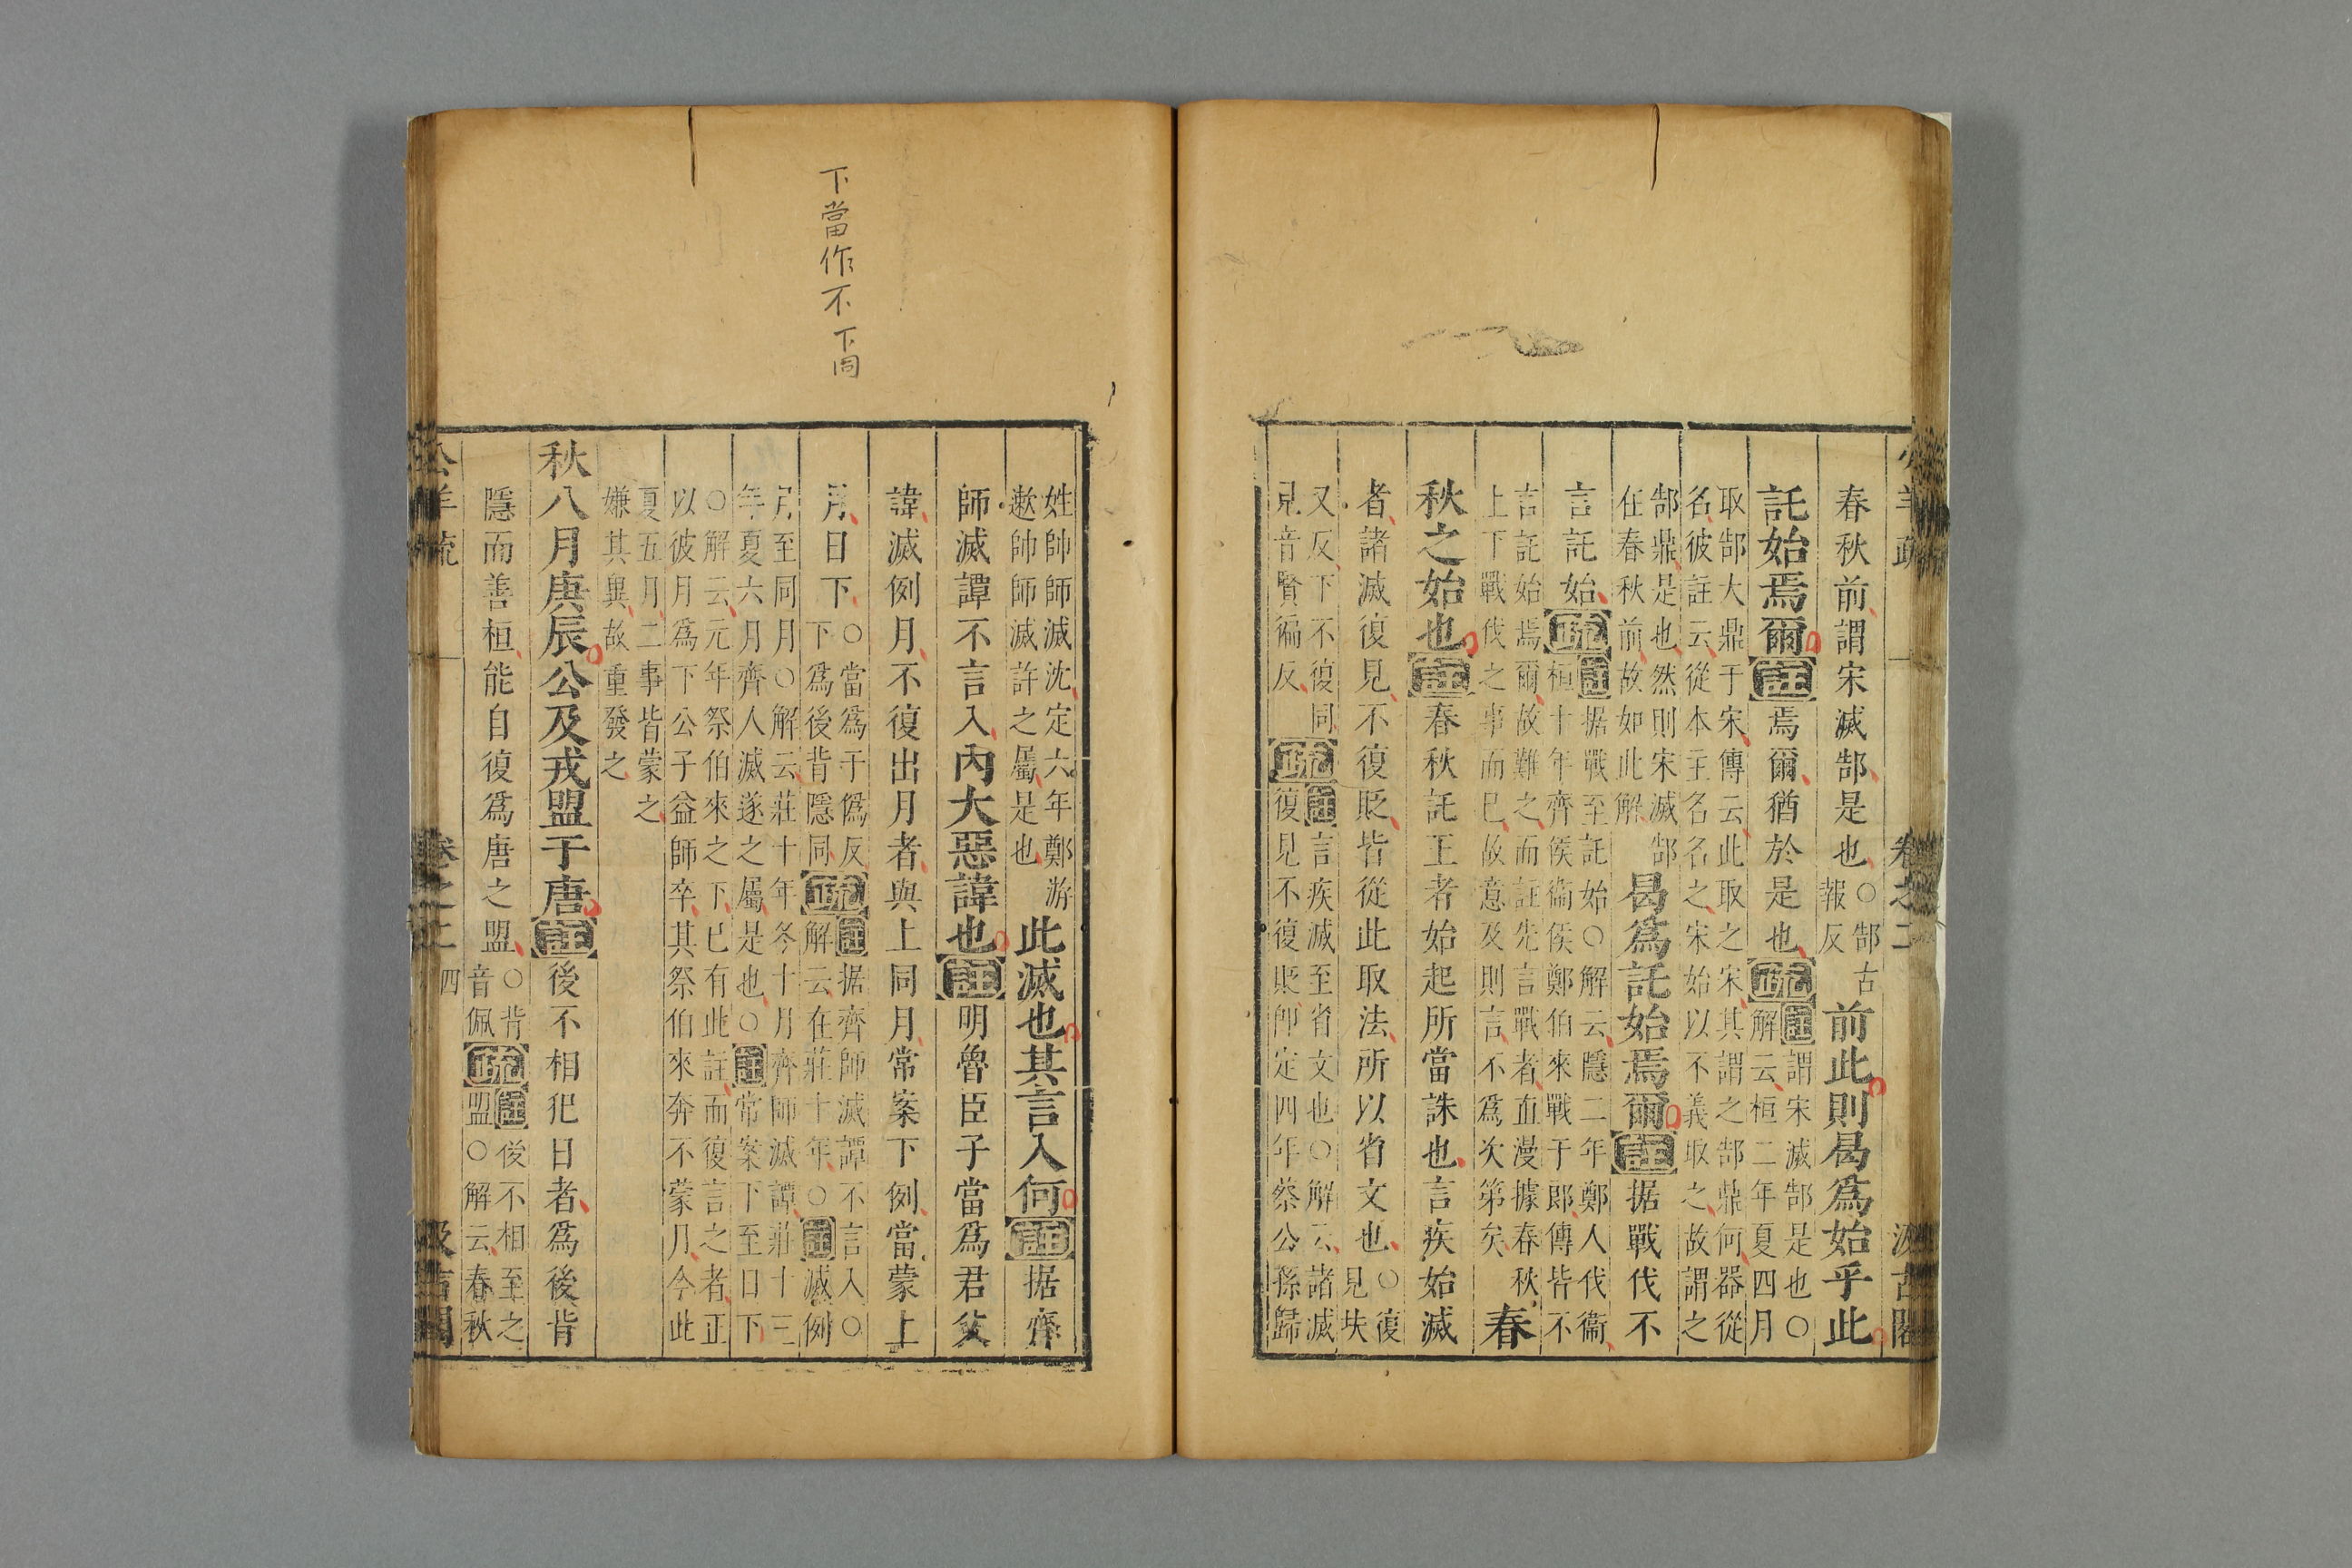 公羊疏 卷之二 汲古閣
春秋前謂宋滅郜是也○郜古
報反
前此則曷爲始乎此
託始焉爾註焉爾猶於是也疏註謂宋滅郜是也○
解云桓二年夏四月
取郜大鼎于宋傳云此取之宋其謂之郜鼎何器從
名彼註云從本主名名之宋始以不義取之故謂之
郜鼎是也然則宋滅郜
在春秋前故如此解
曷爲託始焉爾註据戰伐不
言託始疏註据戰至託始○解云隱二年鄭人伐衞
桓十年齊侯衞侯鄭伯來戰于郎傳皆不
言託始焉爾故難之而註先言戰者直漫據春秋
上下戰伐之事而已故意及則言不爲次第矣
春
秋之始也註春秋託王者始起所當誅也言疾始滅
者諸滅復見不復貶皆從此取法所以省文也○復
見扶
又反下不復同
見音賢徧反
疏註言疾滅至省文也○解云諸滅
復見不復貶卽定四年蔡公孫歸
下當作不下同
姓帥師滅沈定六年鄭游
遬帥師滅許之屬是也
此滅也其言入何註据齊
師滅譚不言入內大惡諱也註明魯臣子當爲君父
諱滅例月不復出月者與上同月常案下例當蒙上
月日下○當爲于僞反
下爲後背隱同
疏註据齊師滅譚不言入○
解云在莊十年○註滅例
月至同月○解云莊十年冬十月齊師滅譚莊十三
年夏六月齊人滅遂之屬是也○註常案下至日下
○解云元年祭伯來之下已有此註而復言之者正
以彼月爲下公子益師卒其祭伯來奔不蒙月今此
夏五月二事皆蒙之
嫌其異故重發之
秋八月庚辰公及戎盟于唐註後不相犯日者爲後背
隱而善桓能自復爲唐之盟○背
音佩
疏註後不相至之
盟○解云春秋
公羊疏 卷之二 四 汲古閣